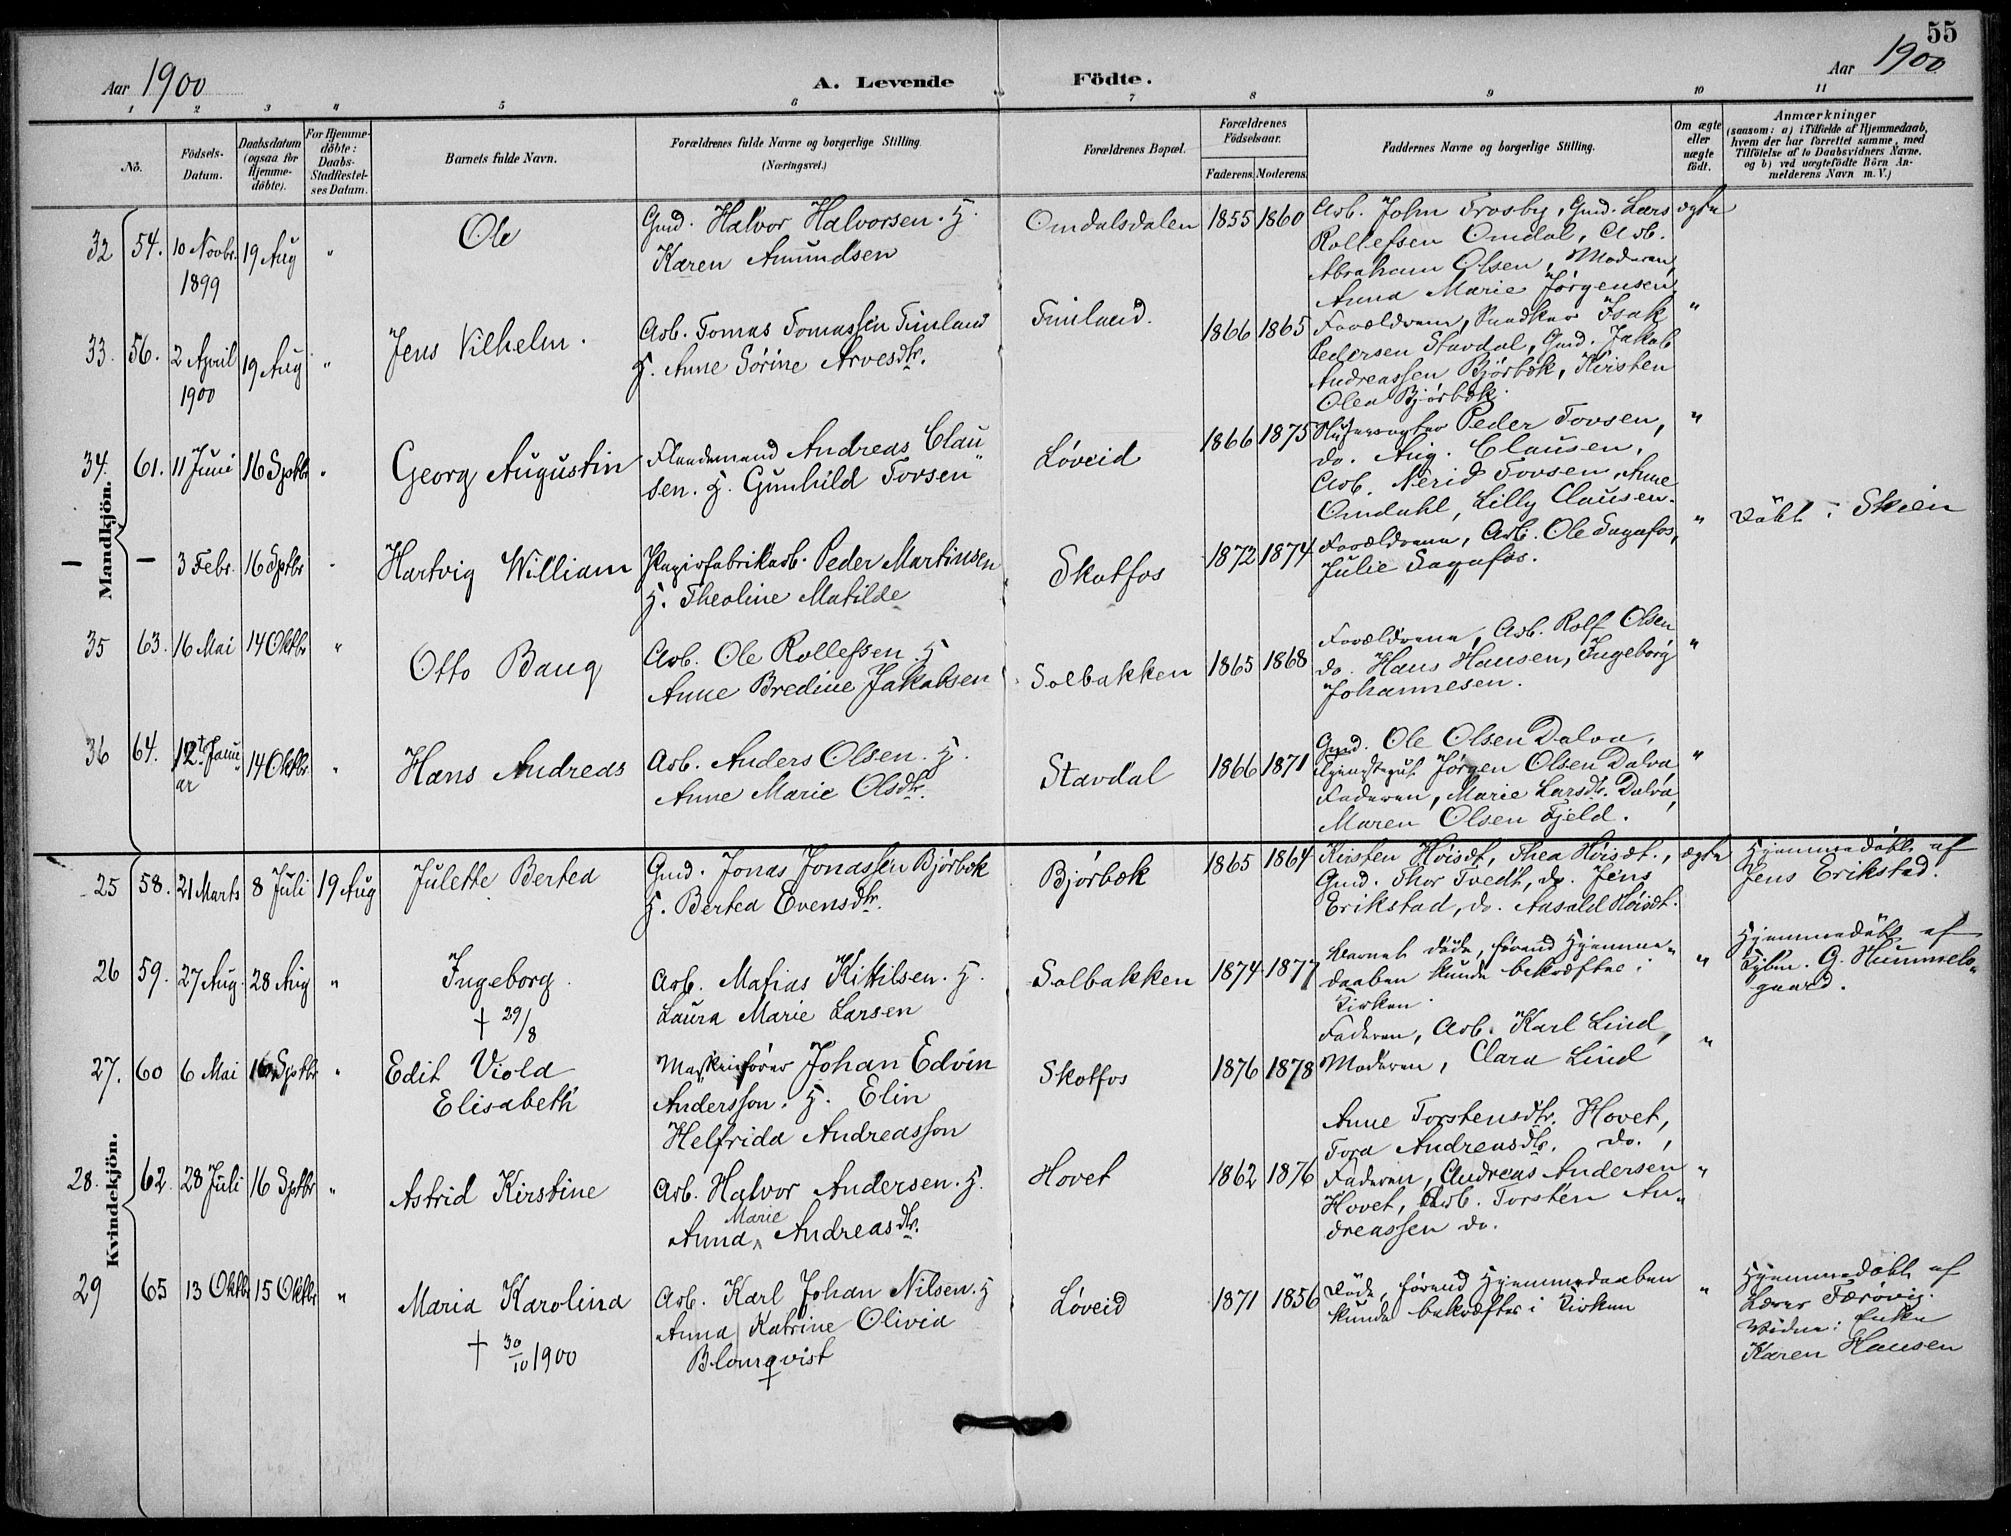 55
Aar 1900
A. Levende Födte.
Aar 1900
1 2 3 4 5 6 7 8 9 10 11
No.
Födsels-Datum.
Daabsdatum (ogsaa for Hjemme-döbte).
For Hjemme-döbte: Daabs-Stadfæstel-ses Datum.
Barnets fulde Navn.
Forældrenes fulde Navne og borgerlige Stilling.
(Næringsvei.)
Forældrenes Bopæl.
Forældrenes Födselsaar.
Faderens. Moderens.
Faddernes Navne og borgerlige Stilling.
Om ægte eller uægte födt.
Anmærkninger
(saasom: a) i Tilfælde af Hjemmedaab,
hvem der har forrettet samme, med
Tilföielse af to Daabsvidners Navne.
og b) ved uægtefödte Börn An-
melderens Navn m. V.)
Mandkjön.
32 54. 10 Novbr. 1899 19 Aug "
Ole
Gmd. Halvor Halvorsen. H.
Karen Amundsen
Omdalsdalen 1855 1860
Arb. John Frosby, Gmd. Lars
Rollefsen Omdal, Arb.
Abraham Olsen, Moderen,
Anna Marie Jørgensen
ægte
33. 56. 2 April 1900 19 Aug "
Jens Vilhelm.
Arb. Tomas Tomassen Finland
H. Anne Sörine Arvesdtr.
Finland. 1866 1865
Forældrene, Isak
Pedersen Stavdal, Gmd. Jakob
Andreassen Bjørbæk, Kirsten
Olea Bjørbæk.
"
34. 61. 11 Juni 16 Sptbr "
Georg Augustin
Flaademand Andreas Clau
sen. H. Gunhild Tovsen
Løveid 1866 1875
Slusevogter Peder Tovsen,
do. Aug. Clausen,
Arb. Nerid Tovsen, Anne
Omdahl, Lilly Clausen.
"
— — 3 Febr. 16 Sptbr "
Hartvig William
Papirfabrikarb. Peder Martinsen
H. Theoline Matilde
Skotfos 1872 1874
Forældrene, Arb. Ole Sagafos,
Julie Sagafos.
" Döbt i Skien
35 63. 16 Mai 14 Oktbr "
Otto Baug
Arb. Ole Rollefsen H
Anne Bredine Jakobsen
Solbakken 1865 1868
Forældrene, Arb. Rolf Olsen
do. Hans Hansen, Ingeborg
Johannesen.
"
36 64. 12te Janu ar 14 Oktbr "
Hans Andreas
Arb. Anders Olsen. H.
Anne Marie Olsdtr.
Stavdal 1866 1871
Gmd. Ole Olsen Dalva,
Jørgen Olsen Dalva
Faderen, Marie Larsdtr. Dalva,
Maren Olsen Fjeld.
"
Kvindekjön.
25 58. 21 Marts 8 Juli 19 Aug
Julette Bertea
Gmd. Jonas Jonassen Bjørbæk
H. Bertea Evensdtr.
Bjørbæk 1865 1864
Kirsten Høisdt, Thea Høisdt.,
Gmd. Thor Tvedt, do. Jens
Erikstad, do. Høisdt.
ægte
Hjemmedøbt af
Jens Erikstad.
26 59. 27 Aug. 28 Aug "
Ingeborg.
† 29/8
Arb. Matias Kittilsen. H.
Laura Marie Larsen
Solbakken 1874 1877
Barnet døde, førend Hjemme-
daaben kunde bekræftes i
Kirken.
"
Hjemmedøbt af
G. Hummels-
gaard.
27. 60 6 Mai 16 Sptbr "
Edit Viola
Elisabeth
Maskinfører Johan Edvin
Andersson. H. Elin
Helfrida Andreasson
Skotfos 1876 1878
Faderen, Arb. Karl Lind,
Moderen, Clara Lind
"
28. 62. 28 Juli 16 Sptbr "
Astrid Kirstine
Arb. Halvor Andersen. H.
Anna Marie Andreasdtr.
Hovet 1862 1876
Anne Torstensdtr. Hovet,
Tora Andreasdtr. do.,
Faderen, Andreas Andersen
Hovet, Arb. Torsten An-
dreassen do.
"
29 65 13 Oktbr 15 Oktbr "
Maria Karolina
† 30/10 1900
Arb. Karl Johan Nilsen. H
Anna Katrine Olivia
Blomqvist
Løveid 1871 1856
Døde, førend Hjemmedaaben
kunde bekræftes i Kirken
"
Hjemmedøbt af
Lærer Færøvig.
Vidne: Enke
Karen Hansen